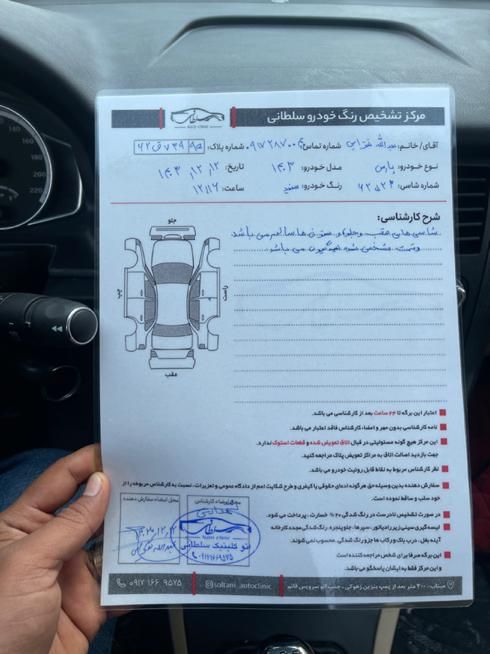 مرکز تشخیص رنگ خودرو سلطانی
آقای/ خانم: عبدالله شماره تماس: شماره پلاک:
نوع خودرو: پارس مدل خودرو: ۱۴۰۳ تاریخ: ۱۴۰۳/۱۲/۱۲
شماره شاسی: رنگ خودرو: سفید ساعت: ۱۲/۱۶
شرح کارشناسی:
شاسی های عقب و جلو و ستون ها سالم می باشد
قسمت مشخص شده می باشد
جلو
چپ
راست
عقب
اعتبار این برگه تا ۲۴ ساعت بعد از کارشناسی می باشد.
نامه کارشناسی بدون مهر و امضاء کارشناس فاقد اعتبار می باشد.
این مرکز هیچ گونه مسئولیتی در قبال اتاق تعویض شده و قطعات استوک ندارد.
جهت بازدید اصالت اتاق به مراکز تعویض پلاک مراجعه کنید.
نظر کارشناس مربوط به نقاط قابل رویت خودرو می باشد.
سفارش دهنده بدین وسیله حق هرگونه ادعای حقوقی یا کیفری و طرح شکایت اعم از دادگاه عمومی و تعزیرات، نسبت به کارشناس مربوطه را از
خود سلب و ساقط نموده است.
در صورت تشخیص نادرست در رنگ شدگی ۲۰% خسارت ، پرداخت می شود.
لیسه گیری سینی زیر رادیاتور، سپرها، جلوپنجره، رنگ شدگی موند کارخانه
آینه بغل، درب باک و رکاب ها جزو رنگ شدگی محسوب نمی شوند.
این برگه صرفا برای شخص مراجعه کننده است
و این مرکز فقط به ایشان پاسخگو می باشد.
محل امضاء کارشناس
محل امضاء سفارش دهنده
اتو کلینیک سلطانی
میناب، ۳۰۰ متر بعد از پمپ بنزین زهوکی، جنب اتو سرویس قائم
soltani_autoclinic
0917 166 9575